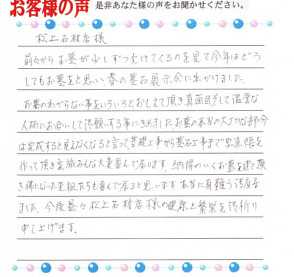 お客様の声 是非あなた様の声をお聞かせください。
松上石材店様
前々からお墓が少しずつかけてくるのを見て今年はどう
してもお墓をと思い春の墓石展示会に出かけました。
お墓のわからない事をいろいろとおしえて頂き真面目そして温厚な
人柄にお会いして依頼する事にきめましたお墓の本当の大切な部分
は完成すると見えなくなると言って基礎工事から墓石工事まで写真帳を
作って頂き家族みんな大変喜んで居ります。納得のいくお墓を建て頂
き佛になった先祖たちも喜んで居ると思います 本当に有難う御座居
ました。今後益々松上石材店様の健康と繁栄を御祈り
申し上げます。